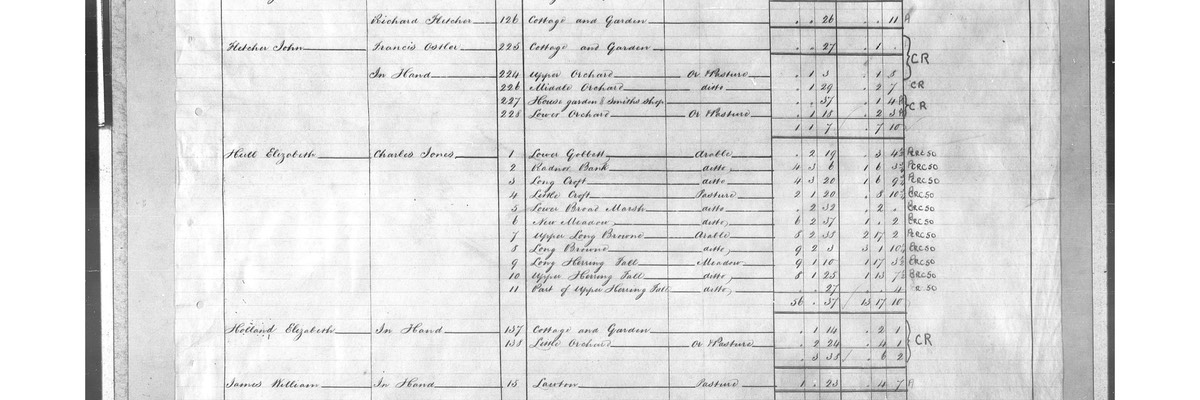 Richard Fletcher 126 Cottage and Garden . . 26 . . 11
Fletcher John Francis Ostler 225 Cottage and Garden . . 27 . 1 .
CR
In Hand 224 Upper Orchard Or & Pasture . 1 3 . 1 8
226 Middle Orchard ditto . 1 29 . 2 7 CR
227 House garden & Smiths Shop . . 37 . 1 4 CR
228 Lower Orchard Or & Pasture . 1 18 . 2 3
1 1 7 . 7 10
Hull Elizabeth Charles Jones 1 Lower Gobbett Arable . 2 19 . 3 4½ RCSO
2 Radnor Bank ditto 4 3 6 1 6 RCSO
3 Long Croft ditto 4 3 20 1 6 RCSO
4 Little Croft Pasture 2 2 20 . 8 10½ RCSO
5 Lower Broad Marsh ditto . 2 32 . 2 . RCSO
6 New Meadow ditto 6 2 37 1 . 2 RCSO
7 Upper Long Browne Arable 8 2 38 2 17 2 RCSO
8 Long Browne ditto 9 2 3 3 1 10½ RCSO
9 Long Herring Fall Meadow 9 1 10 1 17 RCSO
10 Upper Herring Fall ditto 8 1 25 1 13 RCSO
11 Part of Upper Herring Fall ditto . . 27 . . 4
56 . 37 13 17 10
Holland Elizabeth In Hand 137 Cottage and Garden . 1 14 . 2 1
138 Little Orchard Or & Pasture . 2 24 . 4 1 CR
. 3 38 . 6 2
James William In Hand 15 Lawton Pasture 1 . 23 . 4 7